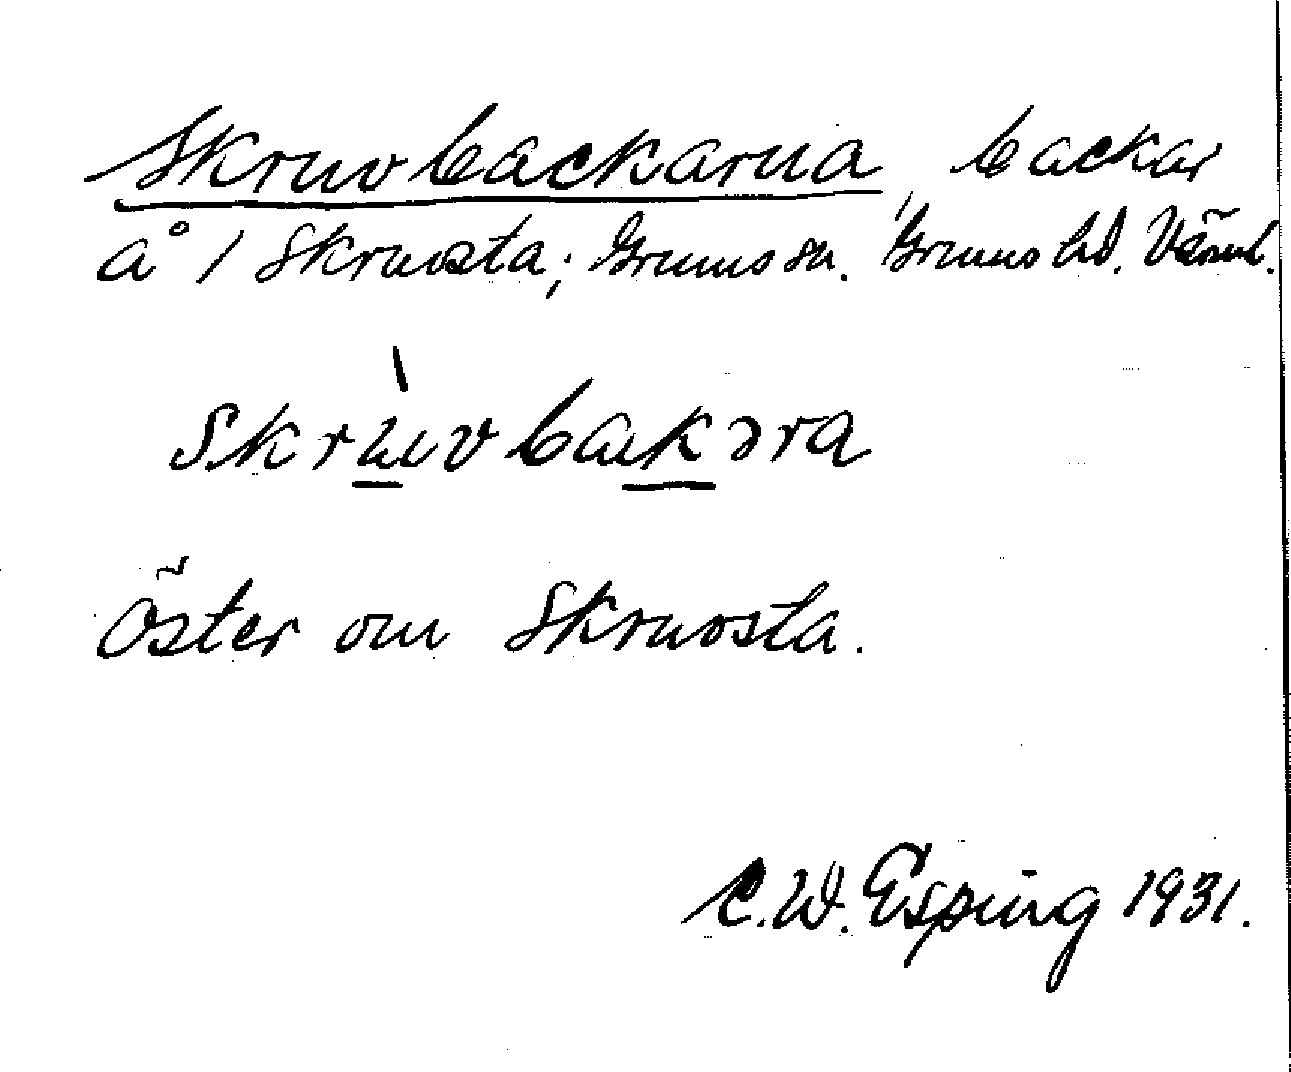 Skruvbackarna, backar
å 1 Skruvsta; Grums sn. Grums hd. Värml.
skrùvbakəra
Öster om Skruvsta.
C. W. Esping 1931.